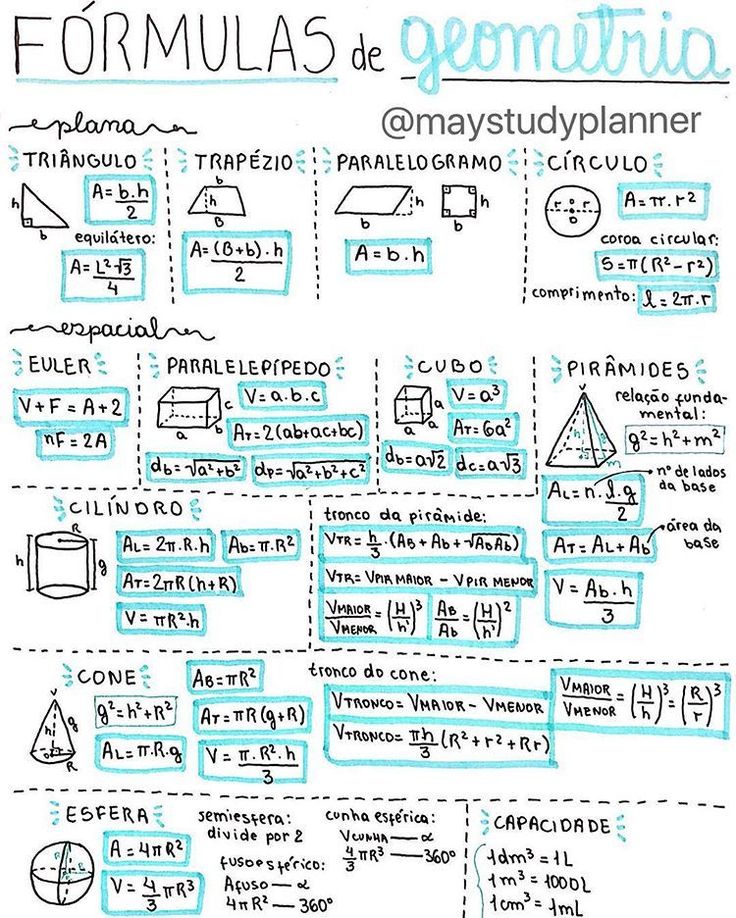 FÓRMULAS de geometria
@maystudyplanner
plana
TRIÂNGULO
h
b
A = b.h/2
equilátero:
A = L²√3/4
TRAPÉZIO
b
h
B
A = (B+b).h/2
PARALELOGRAMO
h
b
h
b
A = b.h
CÍRCULO
r r
D
A = π.r²
coroa circular:
S = π(R²-r²)
comprimento: l = 2π.r
espacial
EULER
V + F = A + 2
nF = 2A
PARALELEPÍPEDO
a
b
c
V = a.b.c
AT = 2(ab+ac+bc)
db = √a²+b²
dp = √a²+b²+c²
CUBO
a
a
a
V = a³
AT = 6a²
db = a√2
dc = a√3
PIRÂMIDES
V
h
g
m
relação funda-
mental:
g² = h² + m²
nº de lados
da base
AL = n. l.g/2
área da
base
AT = AL + Ab
V = Ab.h/3
CILÍNDRO
R
h
g
AL = 2π.R.h
Ab = π.R²
AT = 2πR(h+R)
V = πR².h
tronco da pirâmide:
VTR = h/3 . (AB + Ab + √ABAb)
VTR = VPIR MAIOR - VPIR MENOR
VMAIOR/VMENOR = (H/h)³
AB/Ab = (H/h)²
CONE
V
h
g
R
g² = h² + R²
AL = π.R.g
AB = πR²
AT = πR(g+R)
V = π.R².h/3
tronco do cone:
VTRONCO = VMAIOR - VMENOR
VTRONCO = πh/3 (R² + r² + Rr)
VMAIOR/VMENOR = (H/h)³ = (R/r)³
ESFERA
R
A = 4πR²
V = 4/3 πR³
semiesfera:
divide por 2
fuso esférico:
AFUSO — α
4πR² — 360°
cunha esférica:
VCUNHA — α
4/3 πR³ — 360°
CAPACIDADE
1dm³ = 1L
1m³ = 1000L
1cm³ = 1mL